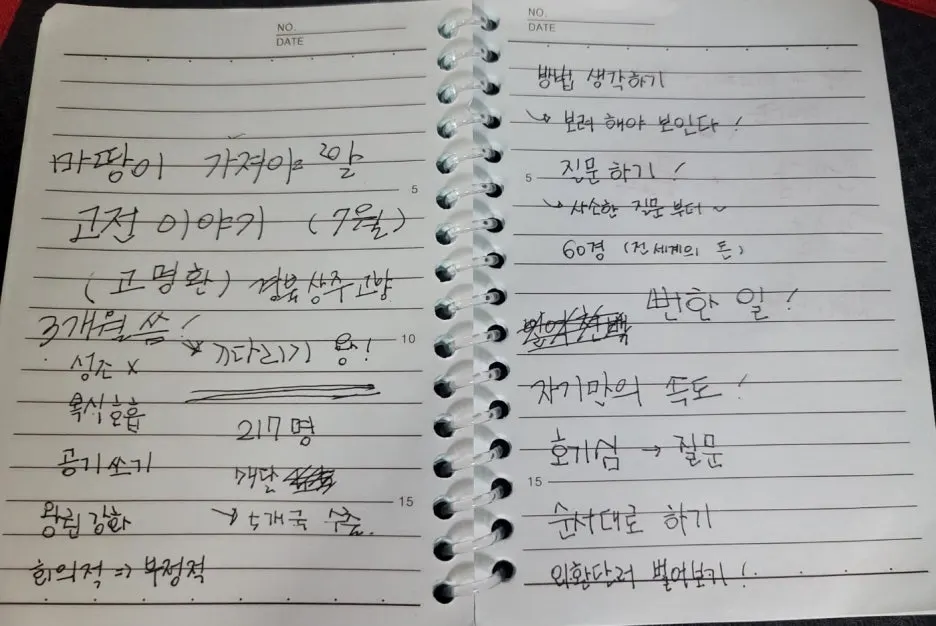 NO.
DATE
마땅이 가져야 20말
고전 이야기 (7월)
(고명환) 경북 상주 고향
3개월 씀!
↘ 기다리기 왕!
성조 x
복식호흡
217명
공기 쓰기
매달
왕권 강화
↘ 5개국 수출.
회의적 => 부정적
5
10
15
NO.
DATE
방법 생각하기
↘ 보려 해야 보인다!
5
질문 하기!
↘ 사소한 질문 부터~
60경 (전 세계의 돈)
번환 일!
자기만의 속도!
호기심 → 질문
15
순서대로 하기
외환단러 벌어보기!